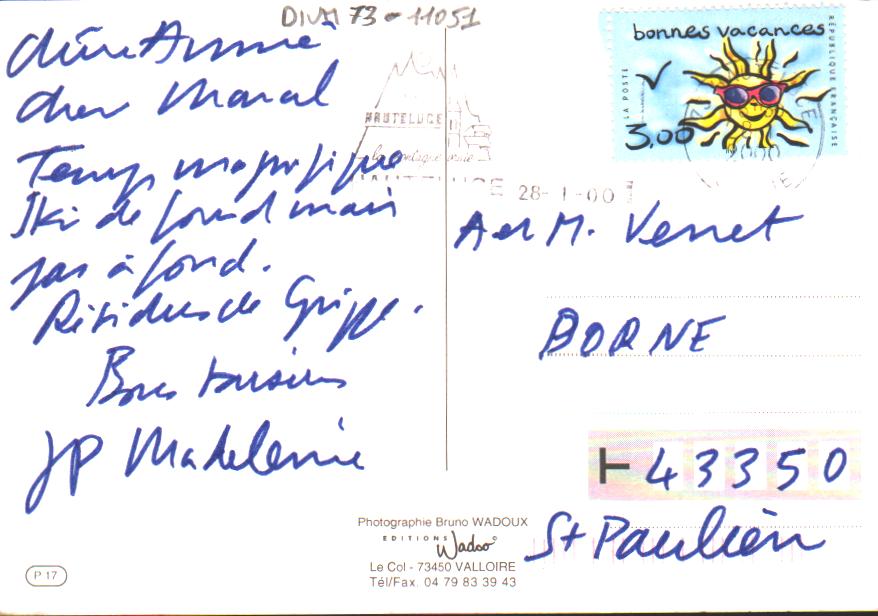 DIVH 73-11051
chère Annie
cher Marcel
Temps magnifique
Ski de fond mais
pas à fond.
Résidus de Grippe.
Bons baisers
JP Madeleine
bonnes vacances
RÉPUBLIQUE FRANÇAISE
LA POSTE
3,00
HAUTELUCE
28-1-00
A et M. Verret
BORNE
43350
St Paulien
Photographie Bruno WADOUX
EDITIONS Wadoo ©
Le Col - 73450 VALLOIRE
Tél/Fax. 04 79 83 39 43
P 17